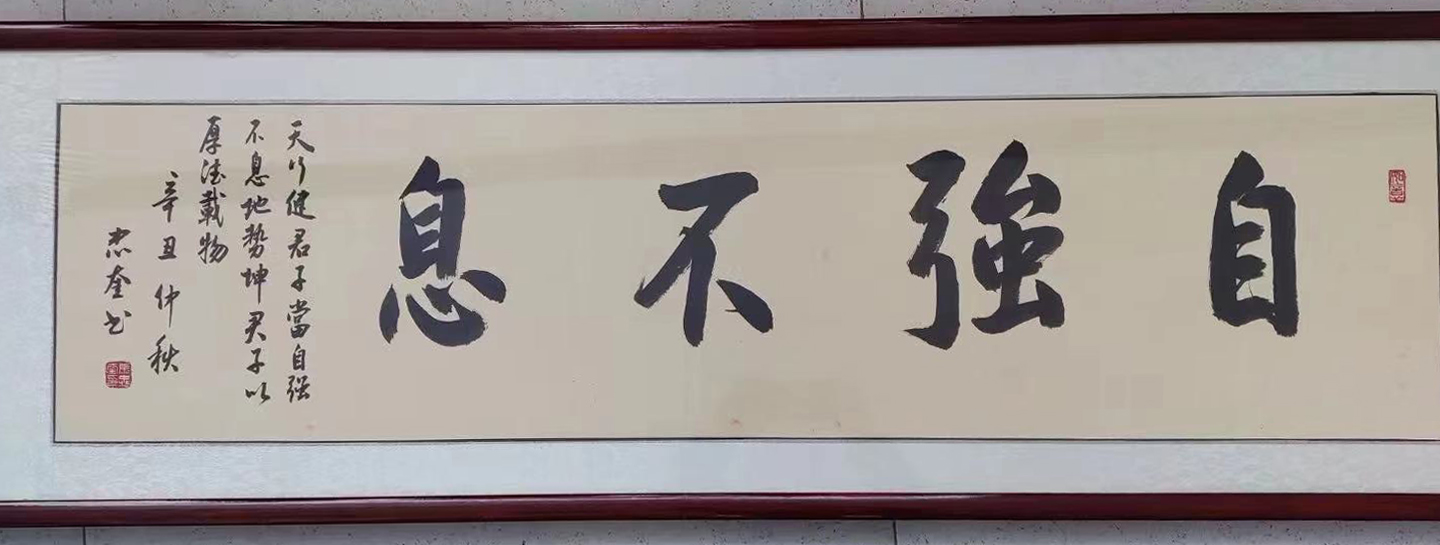 自強不息
天行健君子當自强
不息地势坤君子以
厚德載物
辛丑仲秋
杰奎书